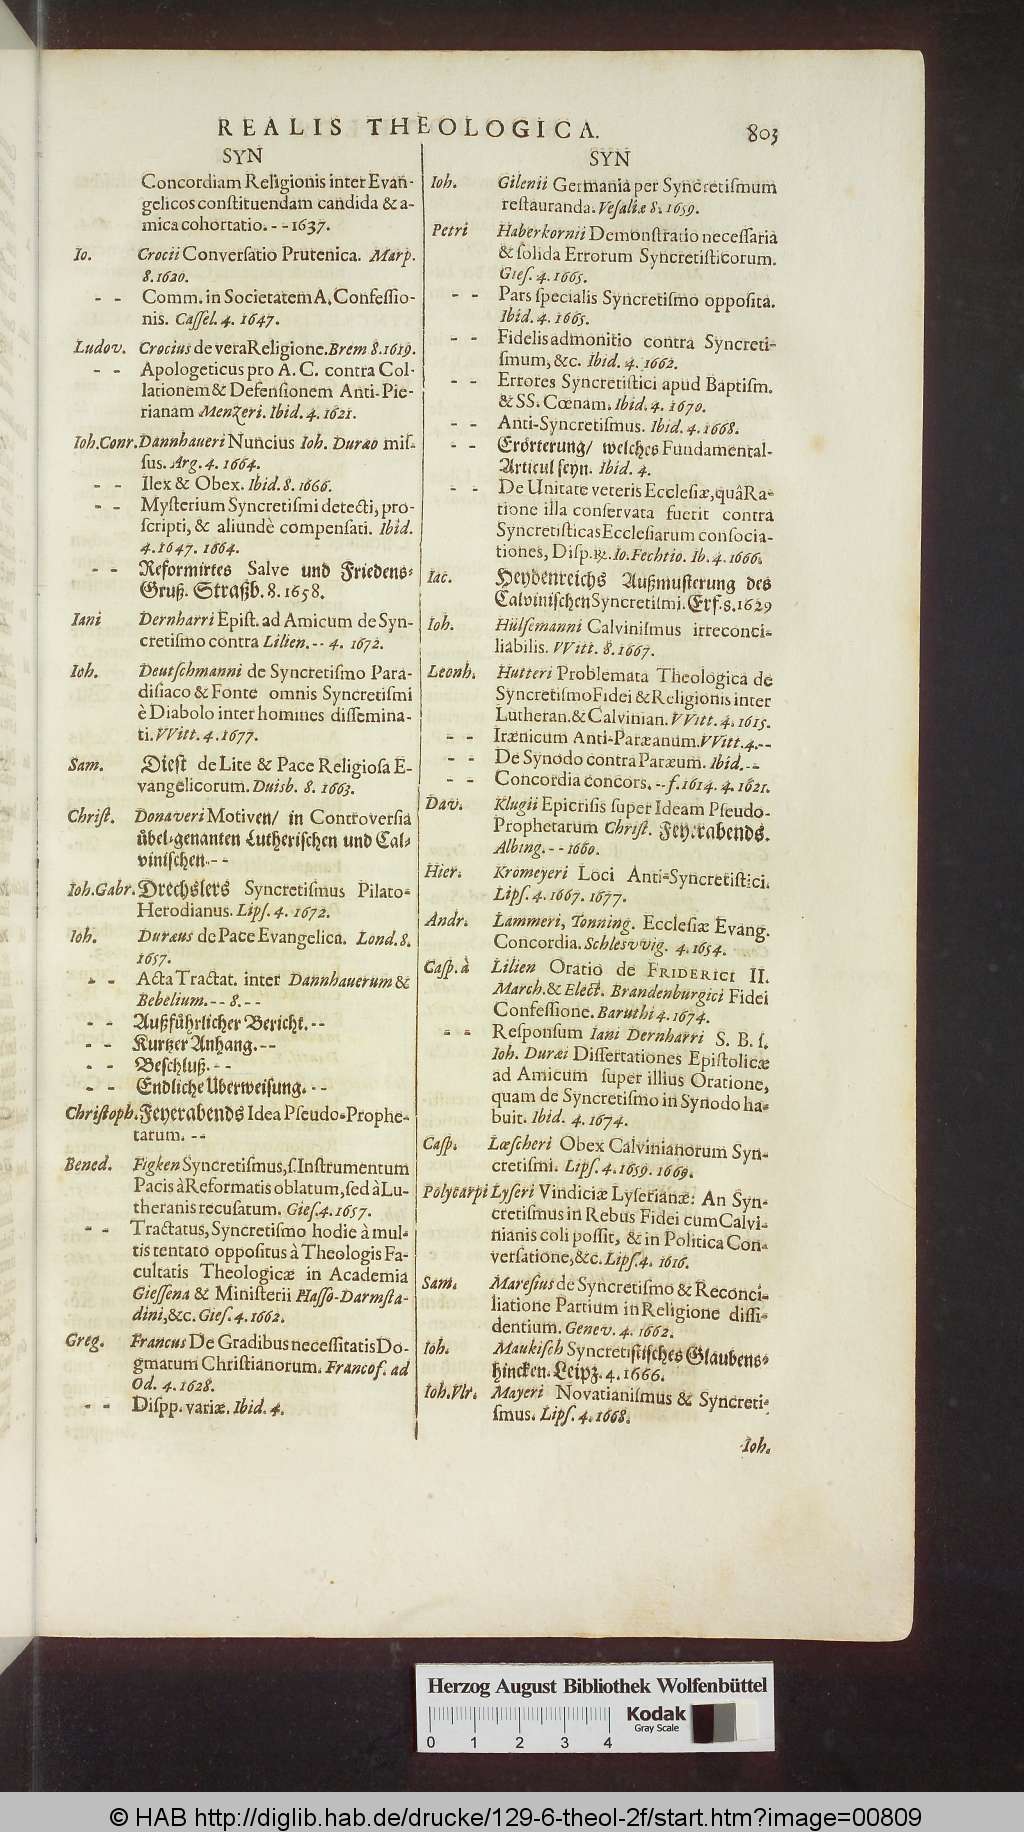 REALIS THEOLOGICA. 803
SYN
Concordiam Religionis inter Evan-
gelicos constituendam candida & a-
mica cohortatio. - - 1637.
Io. Crocii Conversatio Prutenica. Marp.
8. 1620.
- - Comm. in Societatem A. Confessio-
nis. Cassel. 4. 1647.
Ludov. Crocius de vera Religione. Brem 8. 1619.
- - Apologeticus pro A. C. contra Col-
lationem & Defensionem Anti-Pie-
rianam Menzeri. Ibid. 4. 1621.
Ioh. Conr. Dannhaueri Nuncius Ioh. Duræo mis-
sus. Arg. 4. 1664.
- - Ilex & Obex. Ibid. 8. 1666.
- - Mysterium Syncretismi detecti, pro-
scripti, & aliundè compensati. Ibid.
4. 1647. 1664.
- - Reformirtes Salve und Friedens-
Gruß. Straßb. 8. 1658.
Iani Dernharri Epist. ad Amicum de Syn-
cretismo contra Lilien. - - 4. 1672.
Ioh. Deutschmanni de Syncretismo Para-
disiaco & Fonte omnis Syncretismi
è Diabolo inter homines dissemina-
ti. VVitt. 4. 1677.
Sam. Diest de Lite & Pace Religiosa E-
vangelicorum. Duisb. 8. 1663.
Christ. Donaveri Motiven/ in Controversia
übel-genanten Lutherischen und Cal-
vinischen. - -
Ioh. Gabr. Drechslers Syncretismus Pilato-
Herodianus. Lips. 4. 1672.
Ioh. Duræus de Pace Evangelica. Lond. 8.
1657.
- - Acta Tractat. inter Dannhauerum &
Bebelium. - - 8. - -
- - Außführlicher Bericht. - -
- - Kurtzer Anhang. - -
- - Beschluß. - -
- - Endliche Uberweisung. - -
Christoph. Feyerabends Idea Pseudo-Prophe-
tarum. - -
Bened. Figken Syncretismus, s. Instrumentum
Pacis à Reformatis oblatum, sed à Lu-
theranis recusatum. Gies. 4. 1657.
- - Tractatus, Syncretismo hodie à mul-
tis tentato oppositus à Theologis Fa-
cultatis Theologicæ in Academia
Giessena & Ministerii Hasso-Darmsta-
dini, &c. Gies. 4. 1662.
Greg. Francus De Gradibus necessitatis Do-
gmatum Christianorum. Francof. ad
Od. 4. 1628.
- - Dispp. variæ. Ibid. 4.
SYN
Ioh. Gilenii Germania per Syncretismum
restauranda. Vesaliæ 8. 1659.
Petri Haberkornii Demonstratio necessaria
& solida Errorum Syncretisticorum.
Gies. 4. 1665.
- - Pars specialis Syncretismo opposita.
Ibid. 4. 1665.
- - Fidelis admonitio contra Syncreti-
smum, &c. Ibid. 4. 1662.
- - Errores Syncretistici apud Baptism.
& SS. Cœnam. Ibid. 4. 1670.
- - Anti-Syncretismus. Ibid. 4. 1668.
- - Erörterung/ welches Fundamental-
Articul seyn. Ibid. 4.
- - De Unitate veteris Ecclesiæ, quâ Ra-
tione illa conservata fuerit contra
Syncretisticas Ecclesiarum consocia-
tiones, Disp. Io. Fechtio. Ib. 4. 1666.
Iac. Heydenreichs Außmusterung des
Calvinischen Syncretismi. Erf. 8. 1629
Ioh. Hülsemanni Calvinismus irreconci-
liabilis. VVitt. 8. 1667.
Leonh. Hutteri Problemata Theologica de
Syncretismo Fidei & Religionis inter
Lutheran. & Calvinian. VVitt. 4. 1615.
- - Irænicum Anti-Paræanum. VVitt. 4. - -
- - De Synodo contra Paræum. Ibid. - -
- - Concordia concors. - - f. 1614. 4. 1621.
Dav. Klugii Epicrisis super Ideam Pseudo-
Prophetarum Christ. Feyerabends.
Albing. - - 1660.
Hier. Kromeyeri Loci Anti-Syncretistici.
Lips. 4. 1667. 1677.
Andr. Lammeri, Tonning. Ecclesiæ Evang.
Concordia. Schlesvvig. 4. 1654.
Casp. à Lilien Oratio de FRIDERICI II.
March. & Elect. Brandenburgici Fidei
Confessione. Baruthi 4. 1674.
- - Responsum Iani Dernharri S. B. s.
Ioh. Duræi Dissertationes Epistolicæ
ad Amicum super illius Oratione,
quam de Syncretismo in Synodo ha-
buit. Ibid. 4. 1674.
Casp. Lœscheri Obex Calvinianorum Syn-
cretismi. Lips. 4. 1659. 1669.
Polycarpi Lyseri Vindiciæ Lyserianæ: An Syn-
cretismus in Rebus Fidei cum Calvi-
nianis coli possit, & in Politica Con-
versatione, &c. Lips. 4. 1616.
Sam. Maresius de Syncretismo & Reconci-
liatione Partium in Religione dissi-
dentium. Genev. 4. 1662.
Ioh. Maukisch Syncretistisches Glaubens-
hincken. Leipz. 4. 1666.
Ioh. Vlr. Mayeri Novatianismus & Syncreti-
smus. Lips. 4. 1668.
Ioh.
Herzog August Bibliothek Wolfenbüttel
Kodak
Gray Scale
0 1 2 3 4
© HAB http://diglib.hab.de/drucke/129-6-theol-2f/start.htm?image=00809